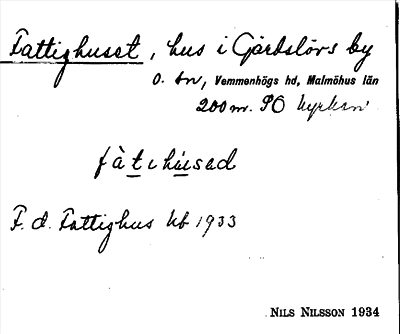 Fattighuset, hus i Gärdslövs by
o. sn, Vemmenhögs hd, Malmöhus län
200 m. SO kyrkan
fàtihúsəd
F. d. Fattighus Ub 1933
NILS NILSSON 1934